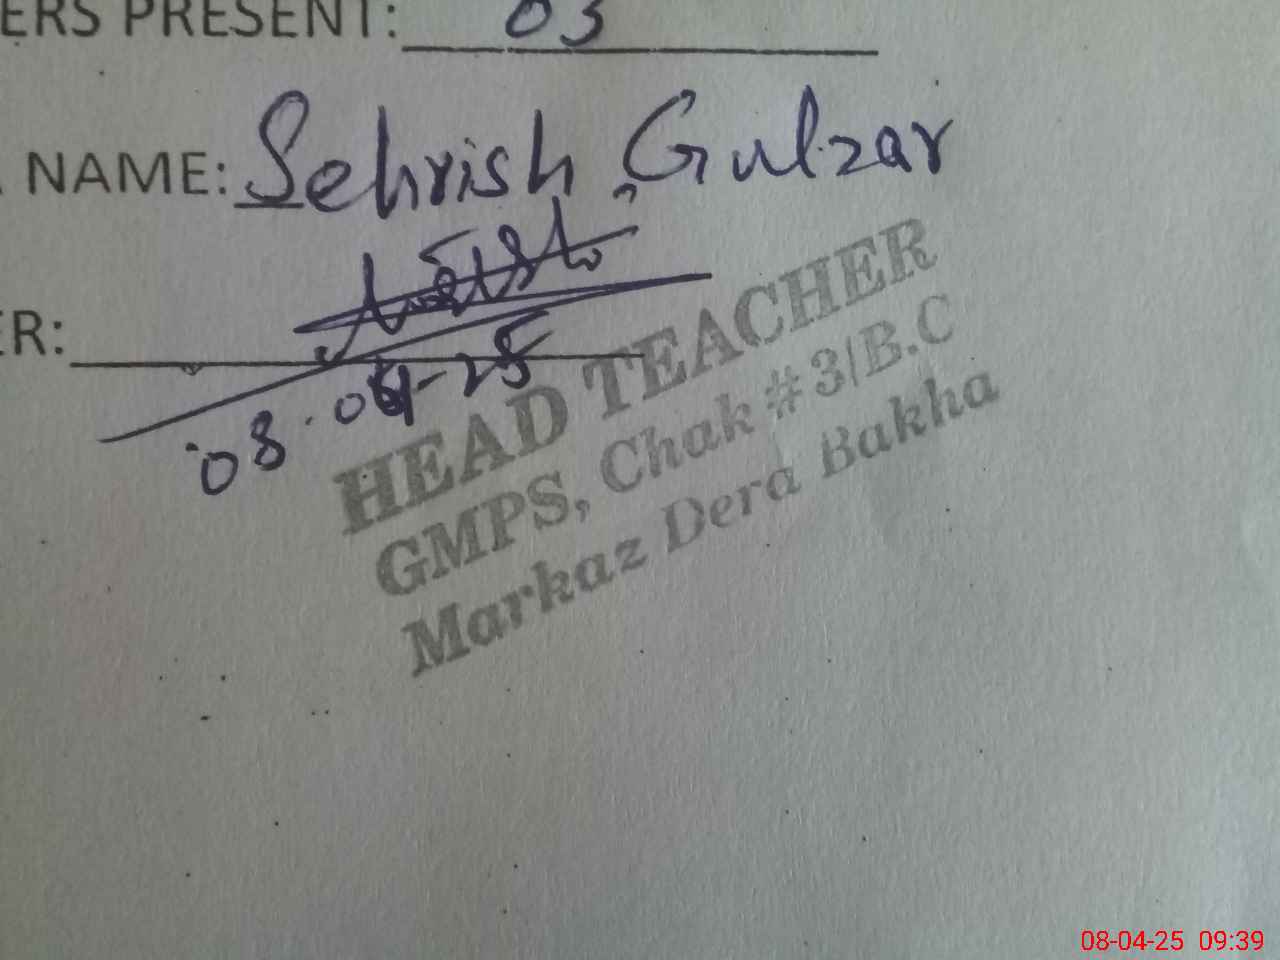 ERS PRESENT: 03
NAME: Sehrish Gulzar
ER:
08.04-25
HEAD TEACHER
GMPS, Chak # 3/B.C
Markaz Dera Bakha
08-04-25 09:39